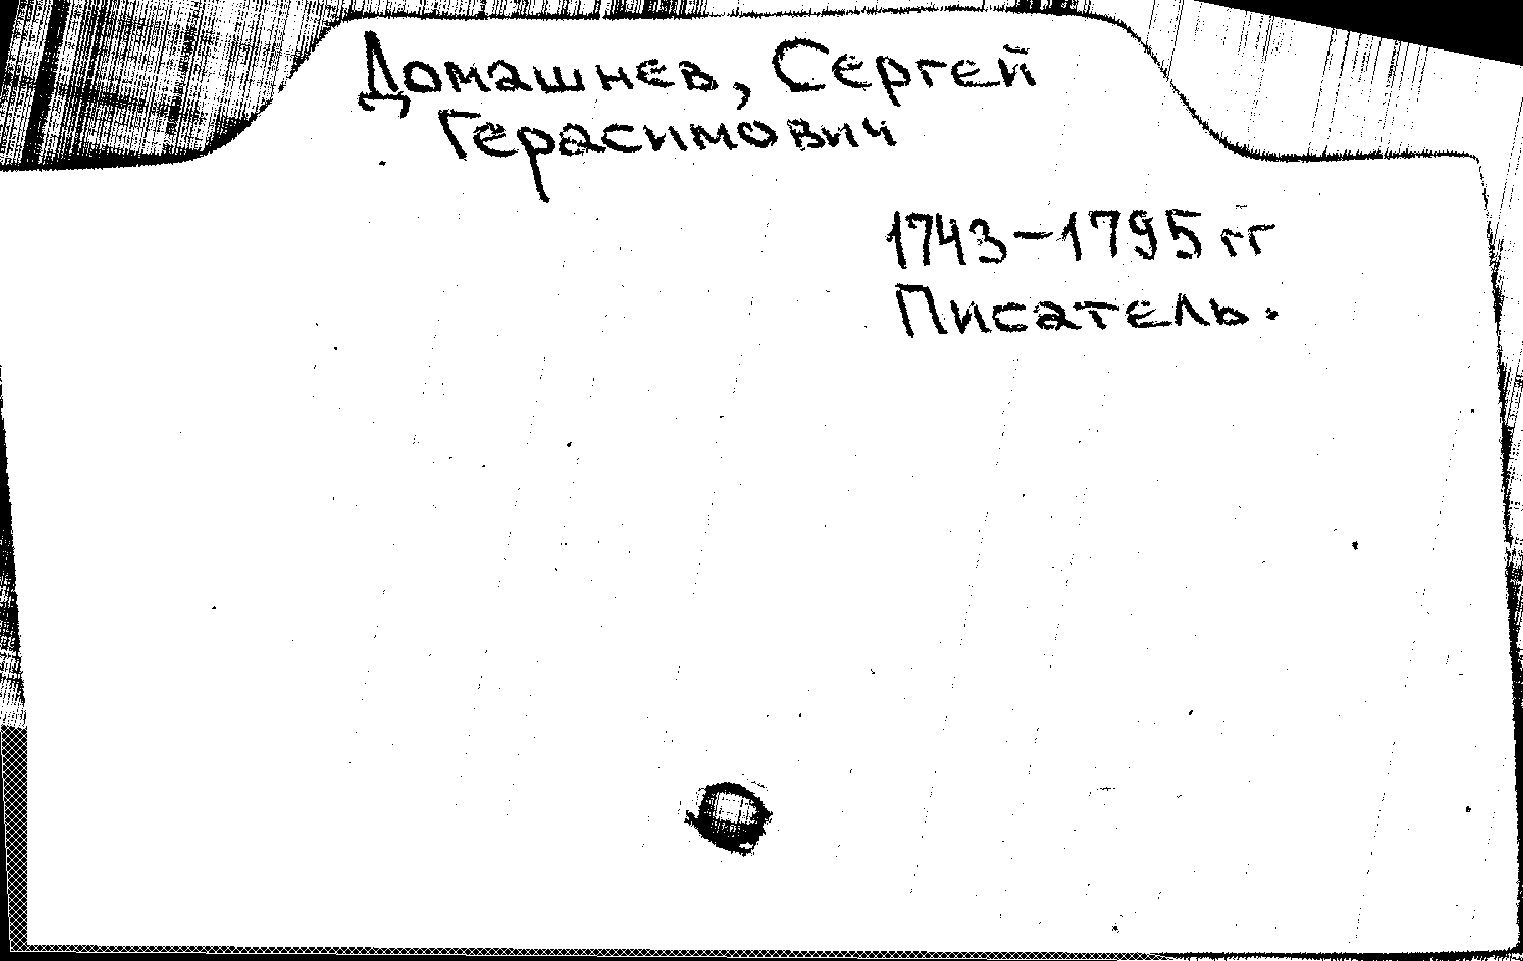 Домашнев, Сергей
Герасимович
1743-1795 гг
Писатель.